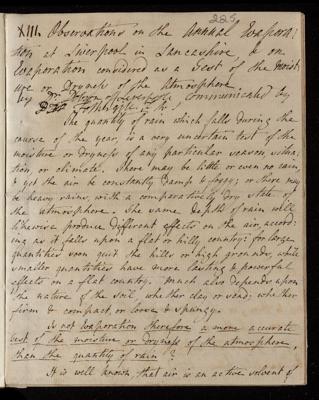 225
XIII. Observations on the Annual Evapora:
tion at Liverpool in Lancashire, & on
Evaporation considered as a Test of the Moist
ure or Dryness of the Atmosphere
by Dr. Dobson of Liverpool Communicated by
Fothergill
The quantity of rain which falls during the
course of the year, is a very uncertain test of the
moisture or dryness of any particular season, situa
tion or climate. There may be little or even no rain,
& yet the air be constantly damp & foggy; or there may
be heavy rains, with a comparatively dry state of
the atmosphere. The same depth of rain will
likewise produce different effects on the air, accord
ing as it falls upon a flat or hilly country: for large
quantities soon quit the hills or high grounds, while
smaller quantities have more lasting & powerful
effects on a flat country. Much also depends upon
the nature of the soil, whether clay or sand; whether
firm & compact, or loose & spungy.
Is not evaporation therefore a more accurate
test of the moisture or dryness of the atmosphere,
than the quantity of rain?
It is well known, that air is an active solvent of